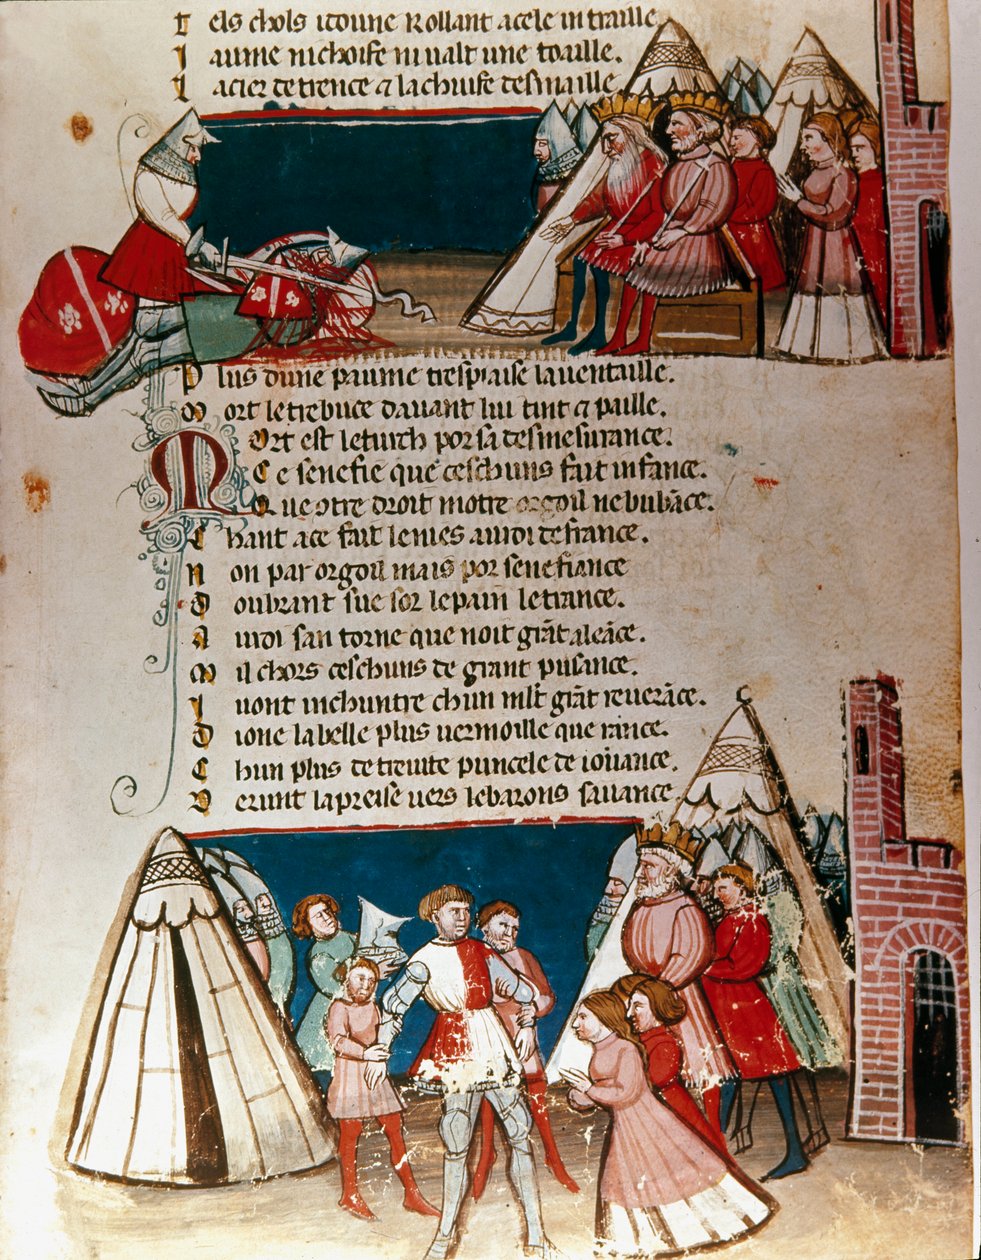 T els chols idoune Rollant acele in traille
I aume ni choife ni ualt une toaille.
I acier de trence & la chuife desmaille
P lus dune paume tresp raise lauentaille.
M ort le trebuce dauant lui tint a paille.
M Ort est le turch por sa desmesurance.
C e senefie que ceschuns fait infance.
Q ue otre droit motre orgoil ne buba͞ce.
C hant a ce fait le nies au roi de france.
N on par orgoil mais por senefiance
D oubrant sue sor le pain le trance.
A u roi san torne que noit gra͞t alea͞ce.
M il chors ceschuns de grant pusance.
I uont in chuntre chun mlt gra͞t reuera͞ce.
D ione la belle plus uermoille que rance.
C hun plus de treuite puncele de iouance.
D erunt la preise uers le barons sauance.